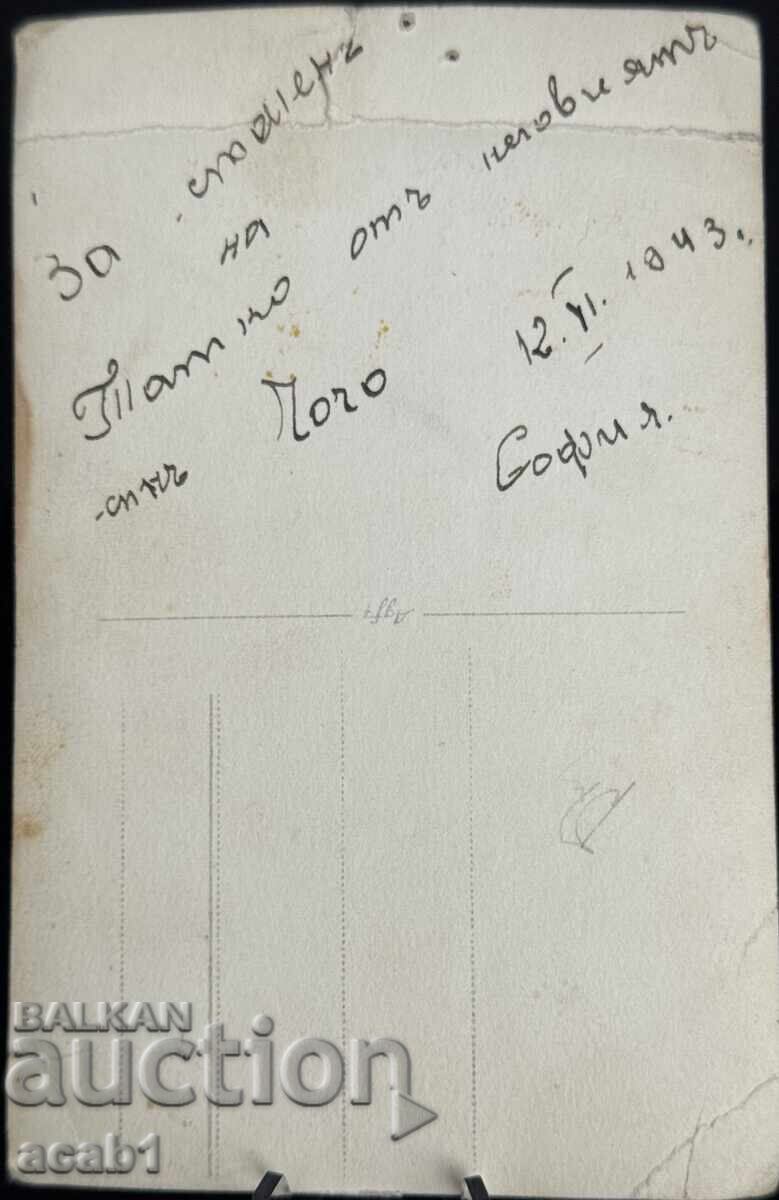 За споменъ
на
Татко отъ неговиятъ
синъ 12.VI.1943.
София.
Agfa
BALKAN
auction
acab1